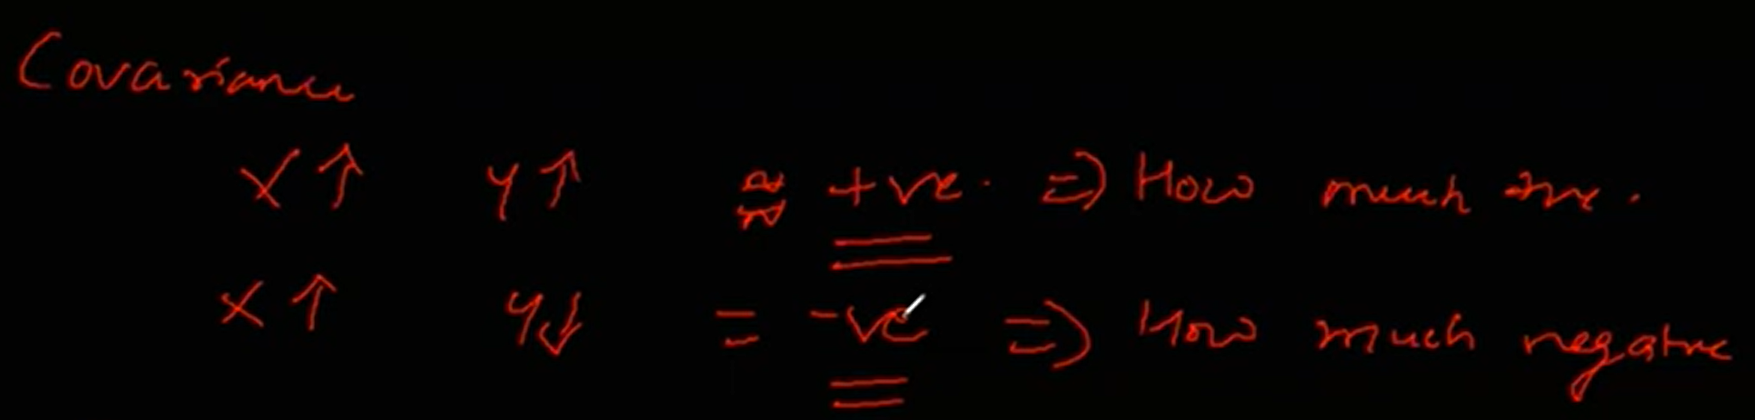 Covariance
X ↑ y ↑ ≈ +ve. => How much +ve.
X ↑ y ↓ = -ve => How much negative